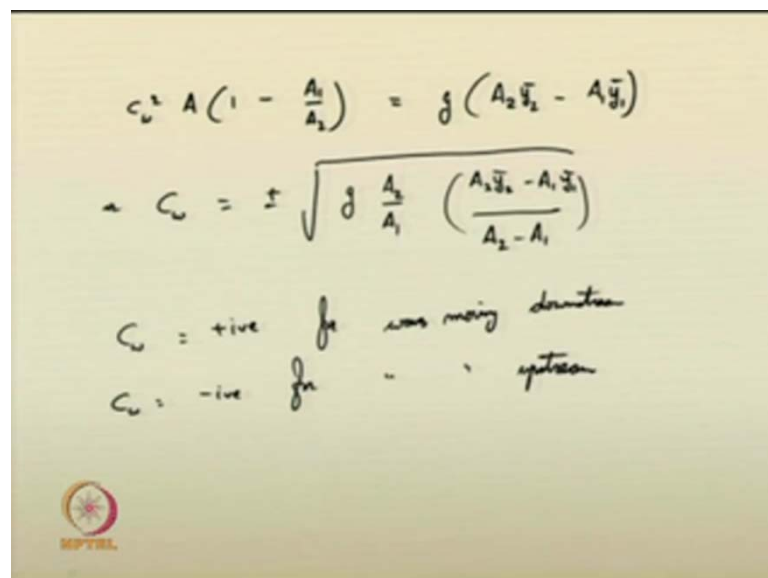 C_w² A (1 - A₁/A₂) = g (A₂ȳ₂ - A₁ȳ₁)
C_w = ± √(g A₂/A₁ ((A₂ȳ₂ - A₁ȳ₁)/(A₂ - A₁)))
C_w = +ive for waves moving downstream
C_w = -ive for " " upstream
NPTEL